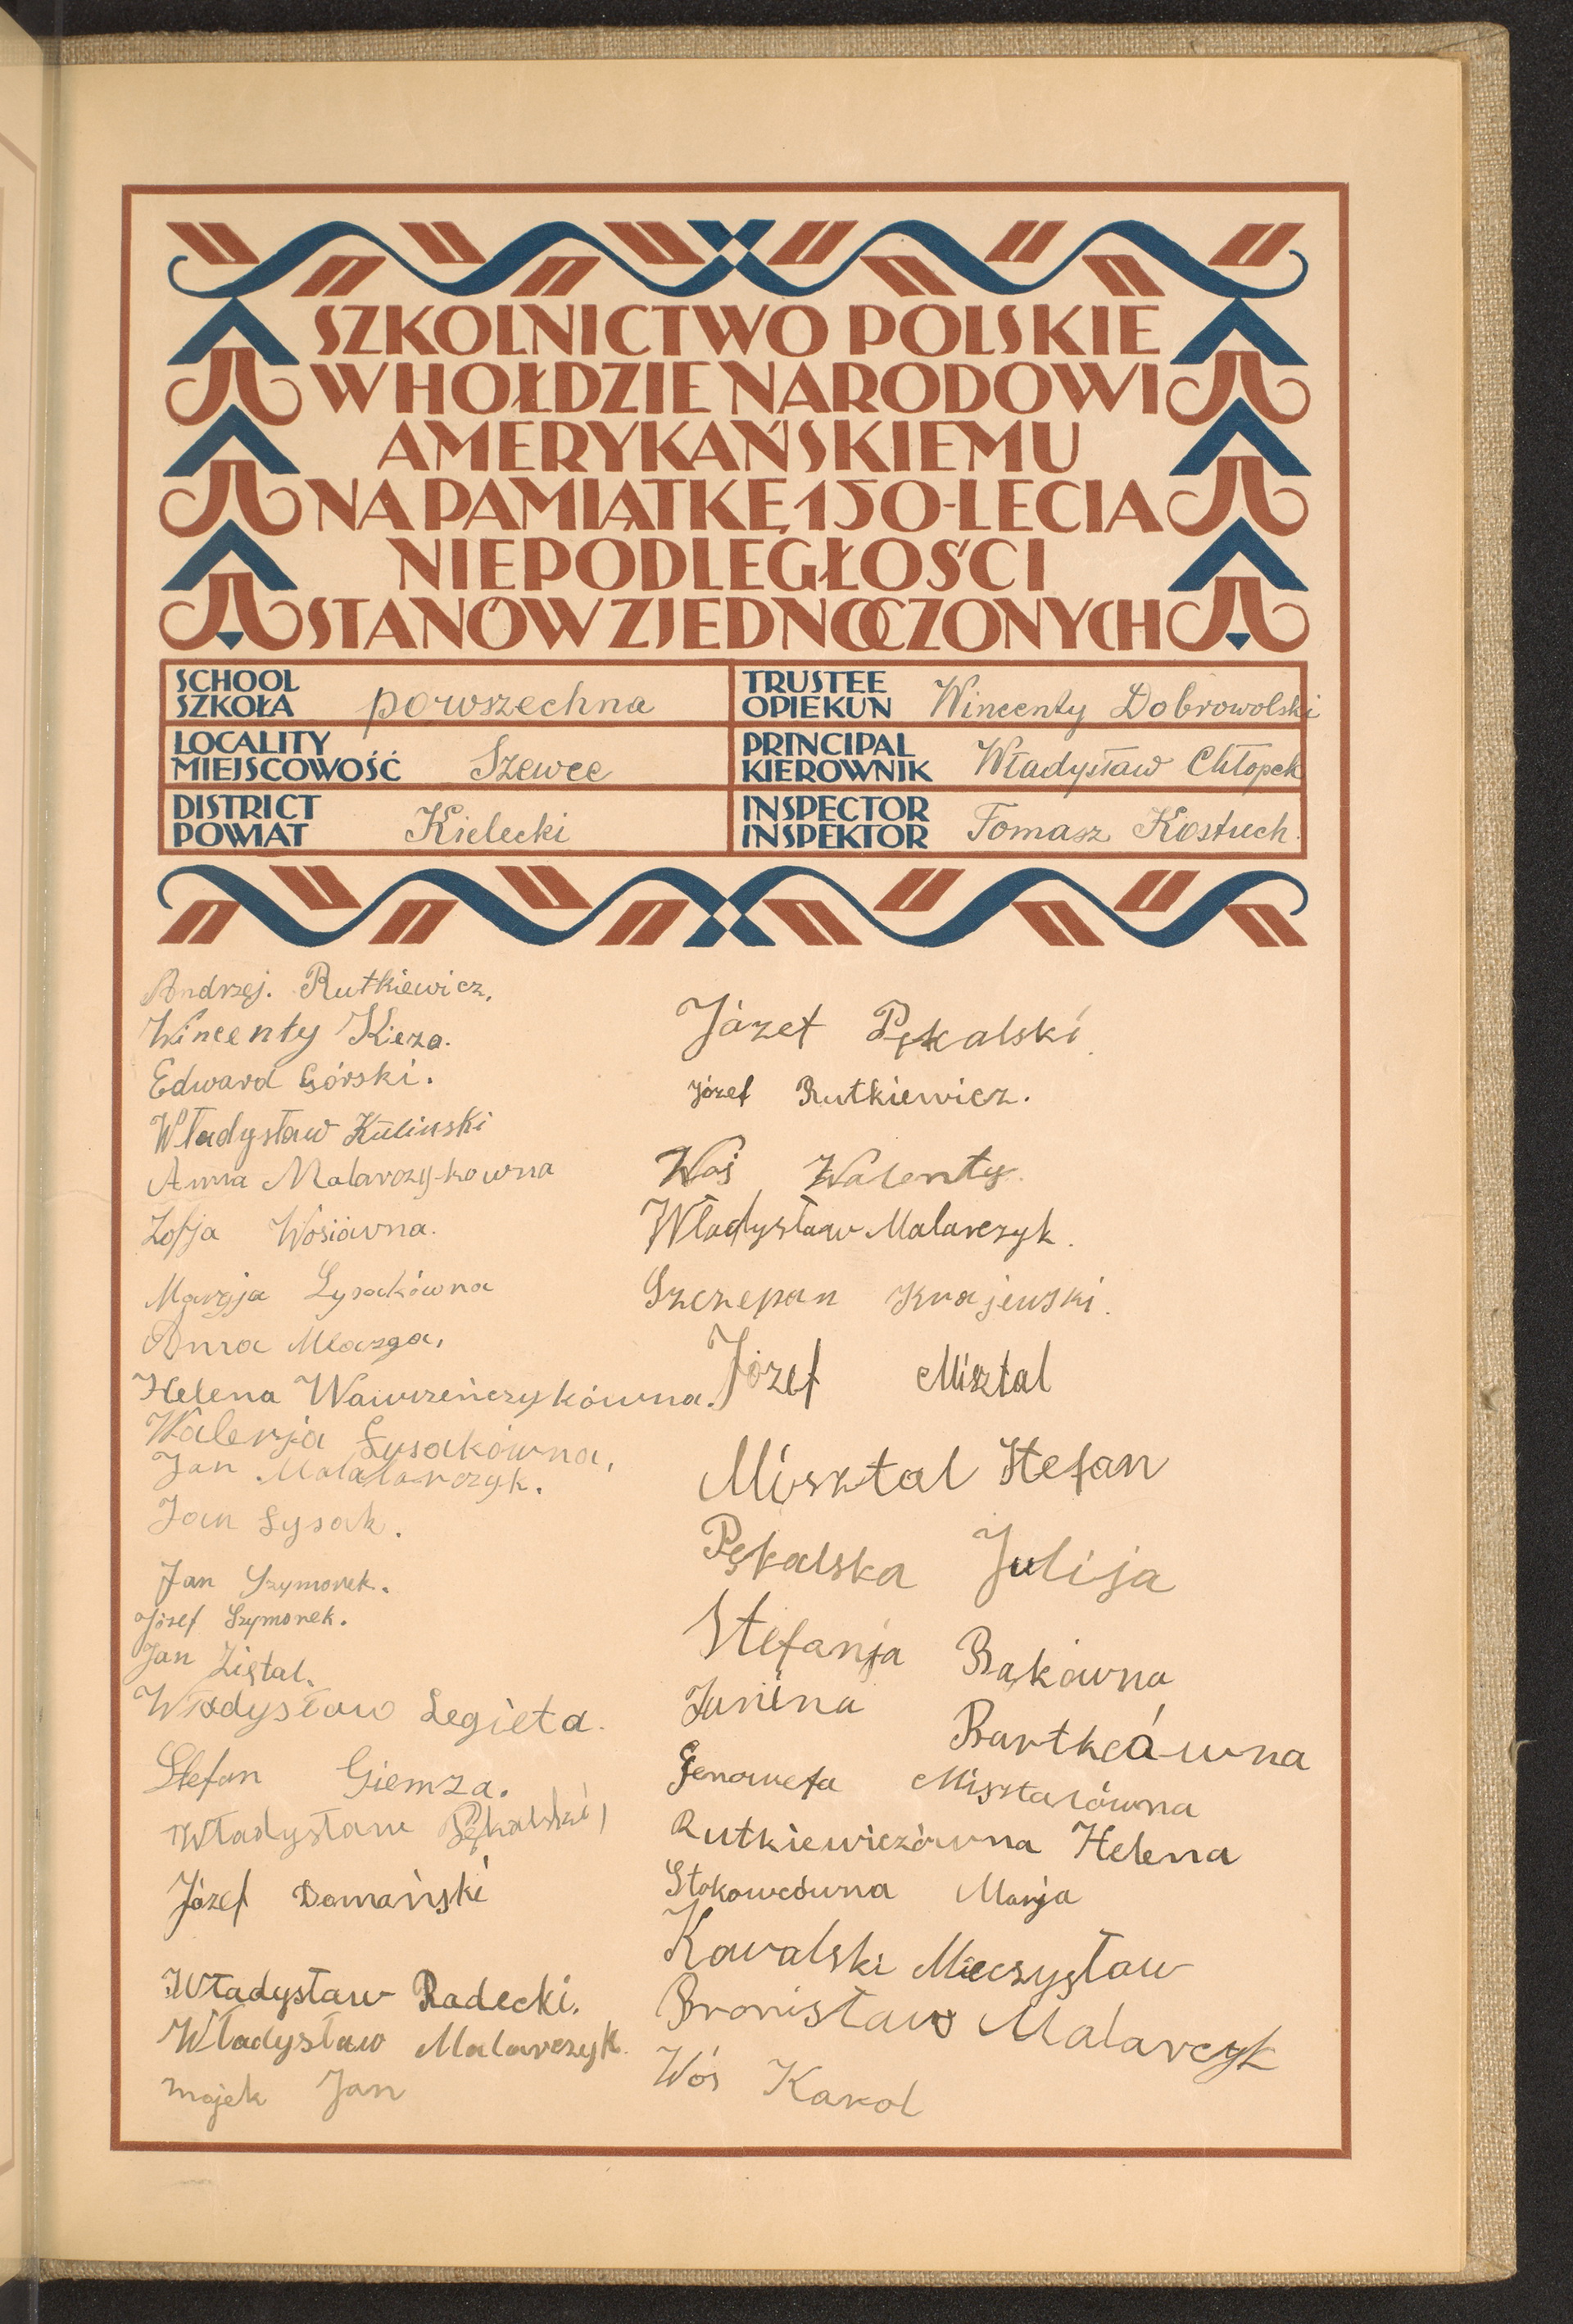 SZKOLNICTWO POLSKIE
W HOŁDZIE NARODOWI
AMERYKAŃSKIEMU
NA PAMIĄTKĘ 150-LECIA
NIEPODLEGŁOŚCI
STANÓW ZJEDNOCZONYCH
SCHOOL
SZKOŁA powszechna
TRUSTEE
OPIEKUN Wincenty Dobrowolski
LOCALITY
MIEJSCOWOŚĆ Szewce
PRINCIPAL
KIEROWNIK Władysław Chłopek
DISTRICT
POWIAT Kielecki
INSPECTOR
INSPEKTOR Tomasz Kostuch.
Andrzej. Rutkiewicz.
Wincenty Kieza.
Edward Górski.
Władysław Kulinski
Anna Malarczykowna
Zofja Wosiówna.
Marja Łysakówna
Anna Mlazga.
Helena Wawrzeńczykówna.
Walerja Łysakówna,
Jan Malalarczyk.
Jan Łysak.
Jan Szymonek.
Józef Szymonek.
Jan Ziętal.
Władysław Legieta.
Stefan Giemza.
Władysław Pękalski,
Józef Domański
Władysław Radecki.
Władysław Malarczyk.
Majek Jan
Józet Pękalski
Józef Rutkiewicz.
Woś Walenty.
Władysław Malarczyk.
Szczepan Krajewski.
Józef Misztal
Misztal Stefan
Pękalska Julija
Stefanja Bąkówna
Janina Bartkeówna
Genowefa Misztalówna
Rutkiewiczówna Helena
Stokowcówna Marja
Kowalski Mieczysław
Bronisław Malarcyk
Wós Karol